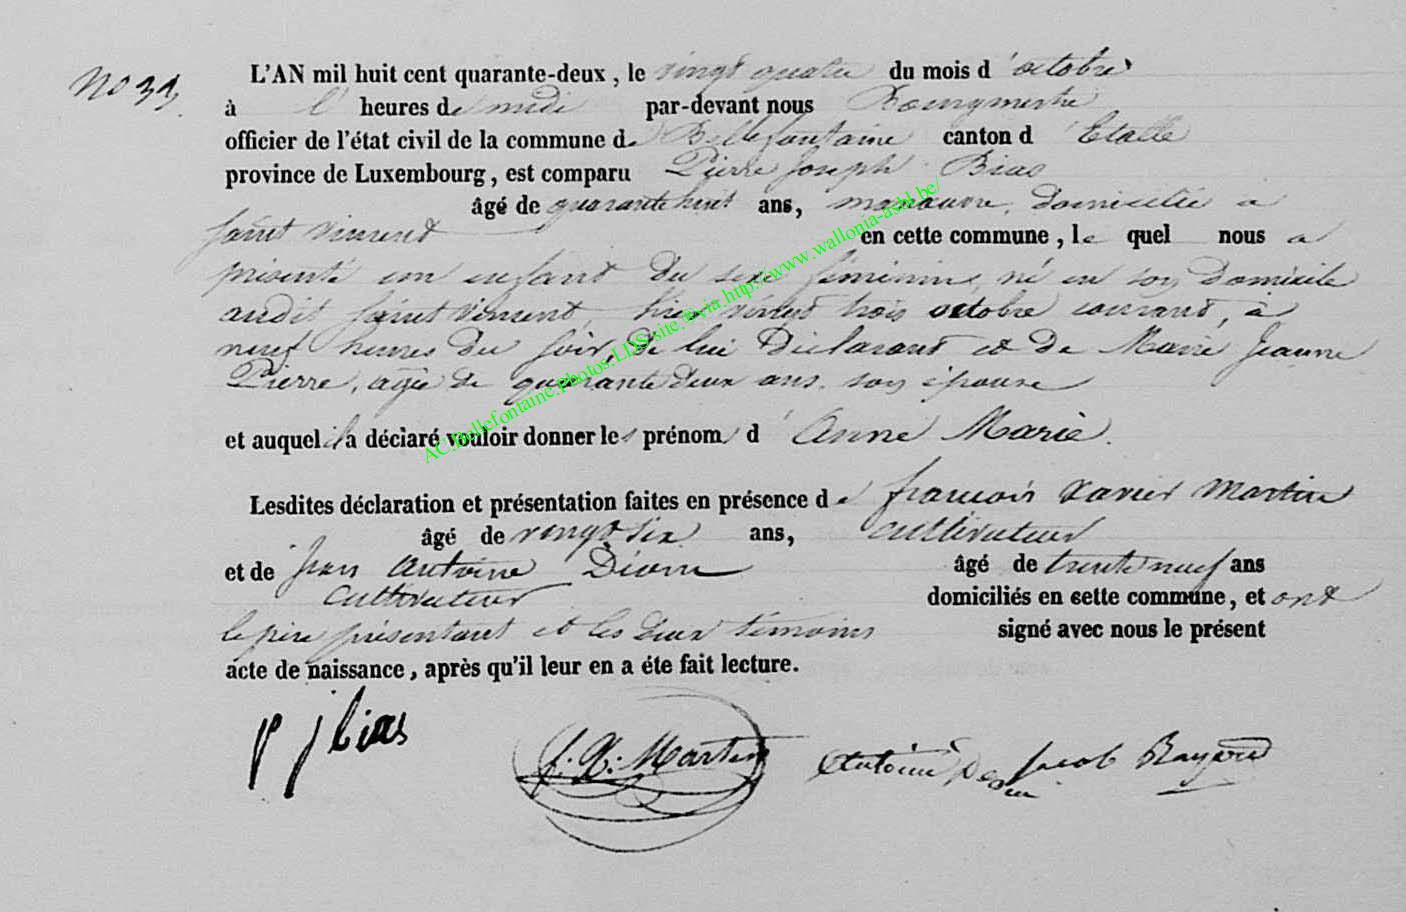 No 33
L'AN mil huit cent quarante-deux, le vingt quatre du mois d'octobre
à l' heures de midi par-devant nous Bourgmestre
officier de l'état civil de la commune de Bellefontaine canton d'Etalle
province de Luxembourg, est comparu Pierre Joseph Bias
âgé de quarante huit ans, manœuvre, domicilié à
saint vincent en cette commune, le quel nous a
présenté un enfant du sexe féminin, né en son domicile
audit saint vincent, hier vingt trois octobre courant, à
neuf heures du soir, de lui Déclarant et de Marie Jeanne
Pierre, agée de quarante deux ans, son épouse
et auquel il a déclaré vouloir donner les prénoms d'Anne Marie.
Lesdites déclaration et présentation faites en présence de françois xavier Martin
âgé de vingt six ans, cultivateur
et de jean antoine Dion âgé de trente neuf ans
cultivateur domiciliés en cette commune, et ont
le père présentant et les deux témoins signé avec nous le présent
acte de naissance, après qu'il leur en a éte fait lecture.
p j bias f. X. Martin Antoine Jacob
AC.Bellefontaine.Photos.LDS.site,&,via http://www.wallonia-asbl.be/